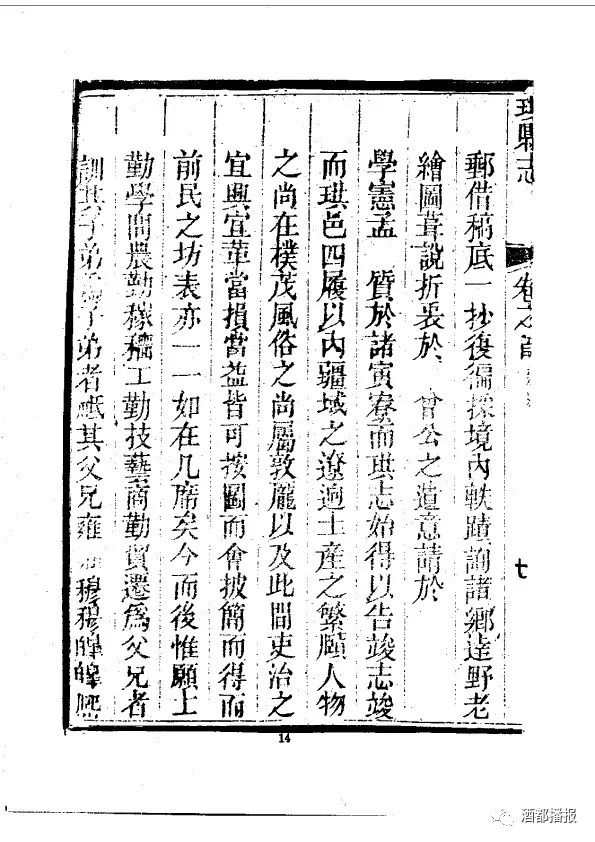 珙縣志 卷之首 七
郵借稿底一抄復徧採境内軼蹟詢諸鄉達野老
繪圖葺說折衷於 曾公之遺意請於
學憲孟 質於諸寅寮而珙志始得以告竣志竣
而珙邑四履以内疆域之遼逈土產之繁賾人物
之尚在樸茂風俗之尚屬敦龎以及此間吏治之
宜興宜革當損當益皆可按圖而會披簡而得而
前民之坊表亦一一如在几席矣今而後惟願士
勤學問農勤稼穡工勤技藝商勤貿遷為父兄者
訓其子弟為子弟者祗其父兄雍 穆穆皥皥熙
14
酒都播报